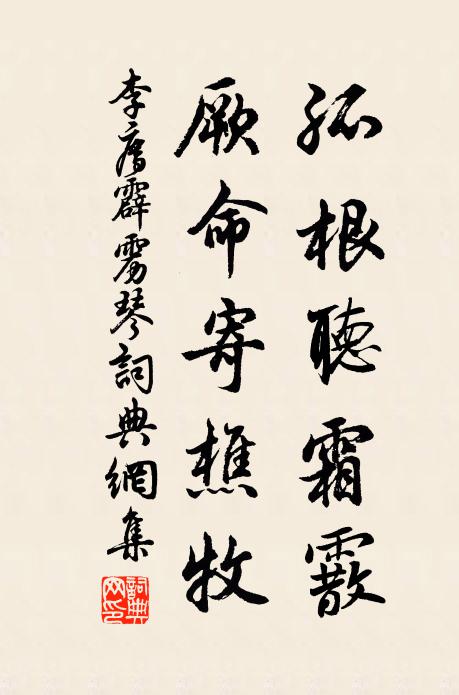 孤根聽霜霰
厥命寄樵牧
李廌霹雳琴詞典網集
詞典网印